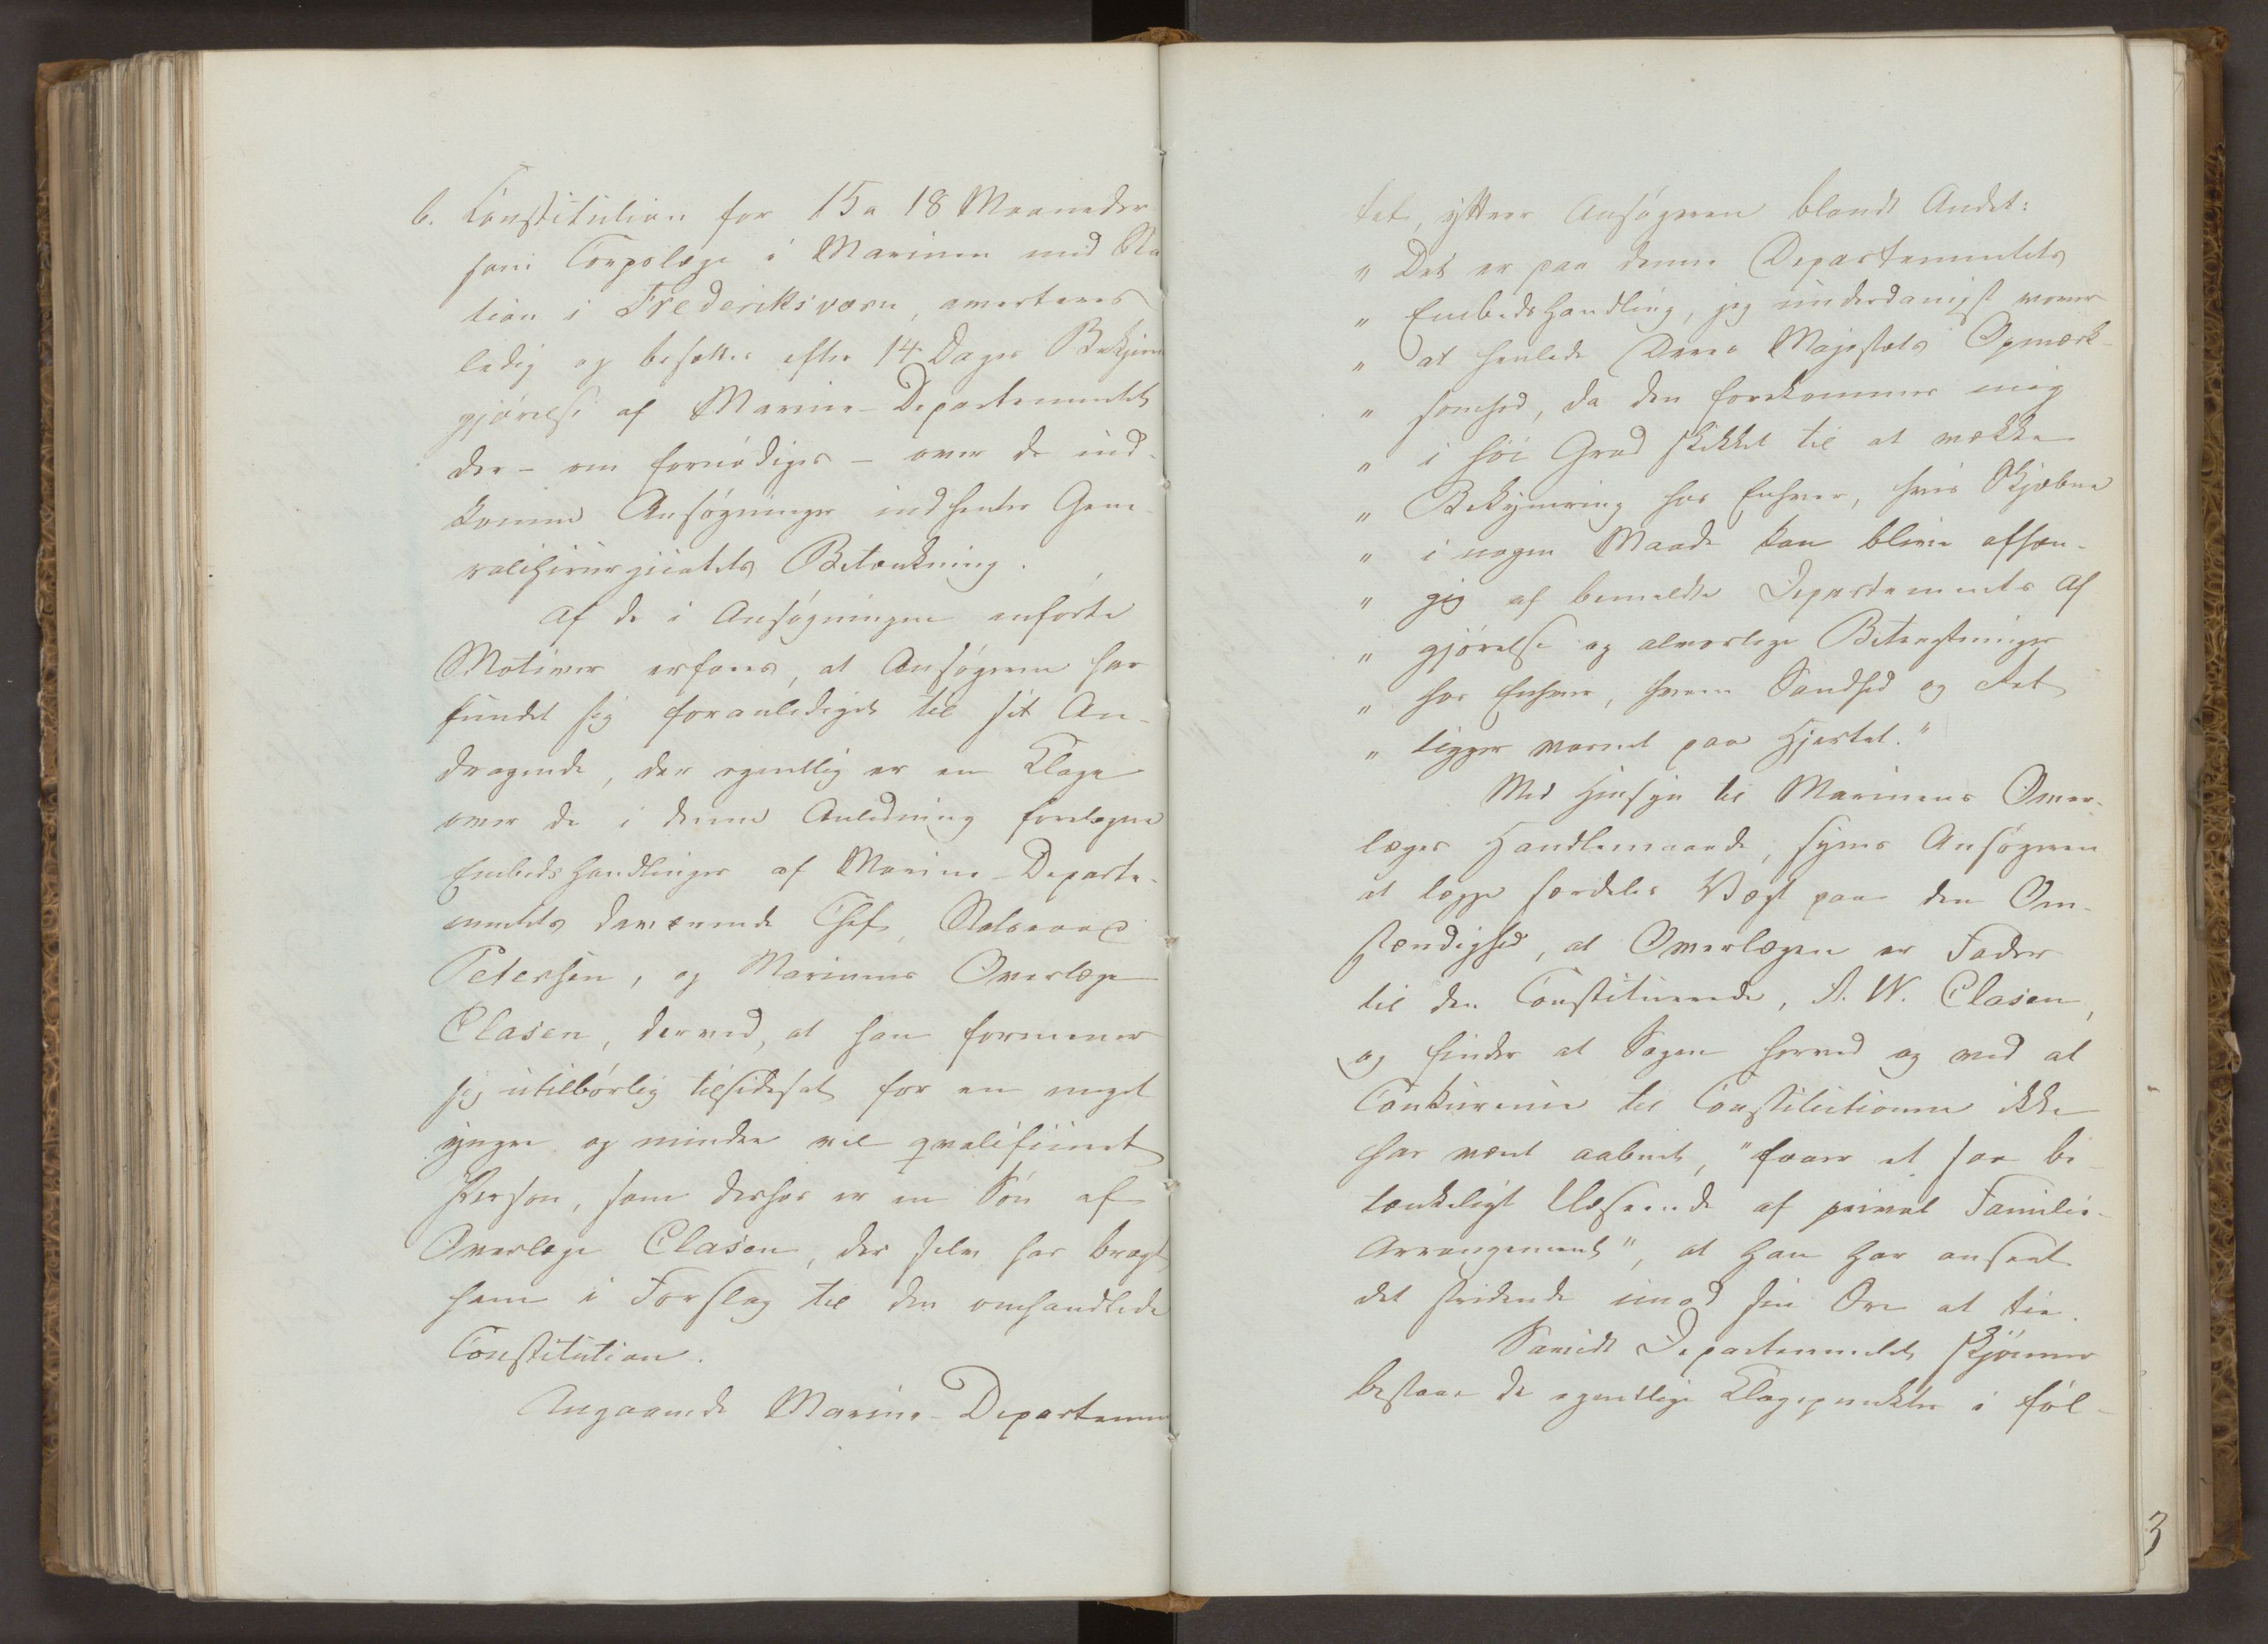 b. Constitution for 15 a 18 Maaneder
som Corpslæge i Marinen med Sta
tion i Frederiksværn, averteres
ledig og besættes efter 14 Dages Bekjendt
gjørelse af Marine-Departementet
der - om fornødiges - over de ind-
komne Ansøgninger indhenter Gene-
ralchirurgiatets Betænkning.
Af de i Ansøgningen anførte
Motiver erfares, at Ansøgeren har
fundet sig foranlediget til sit An-
dragende, der egentlig er en Klage
over de i denne Anledning foretagne
Embedshandlinger af Marine-Departe-
mentets daværende Chef, Statsraad
Petersen, og Marinens Overlæge
Clasen, derved, at han formener
sig utilbørlig tilsidesat for en meget
yngre og mindre vel qvalificeret
Person, som derhos er en Søn af
Overlæge Clasen, der selv har bragt
ham i Forslag til den omhandlede
Constitution.
Angaaende Marine-Departemen
tet, yttrer Ansøgeren blandt Andet:
" Det er paa denne Departementets
" Embedshandling, jeg underdanigst vover
" at henlede Deres Majestæts Opmærk-
" somhed, da den forekommer mig
" i høi Grad skikket til at vække
" Bekymring hos Enhver, hvis Skjæbne
" i nogen Maade kan blive afhæn-
" gig af bemeldte Departements Af
" gjørelse og alvorlige Betragtninger
" hos Enhver, hvem Sandhed og Ret
" ligger varmt paa Hjertet."
Med Hensyn til Marinens Over-
læges Handlemaade, synes Ansøgeren
at lægge særdeles Vægt paa den Om-
stændighed, at Overlægen er Fader
til den Constituerede, A. W. Clasen,
og finder at Sagen herved og ved at
Conkurence til Constitutionen ikke
har været aabnet, "faaer et saa be-
tænkeligt Udseende af privat Familie-
Arrangement", at Han har anseet
det stridende imod sin Ære at tie.
Saavidt Departementet skjønner
bestaae de egentlige Klagepunkter i føl-
3